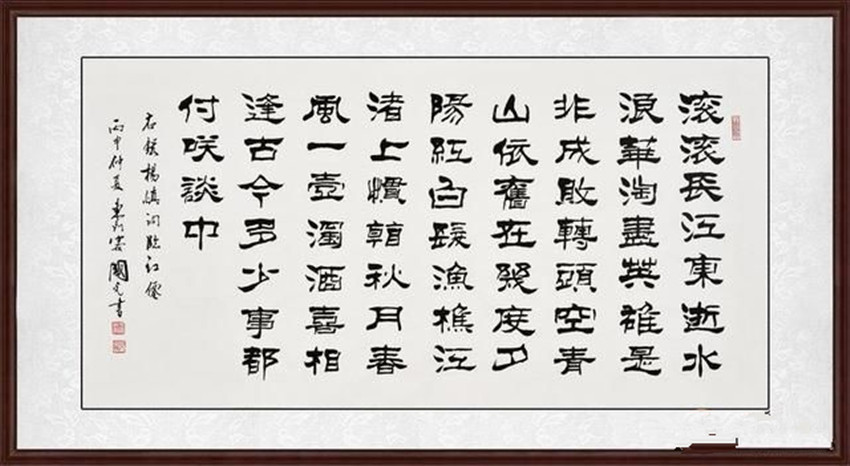 滚滚長江東逝水
浪華淘盡英雄是
非成敗轉頭空青
山依舊在幾度夕
陽紅白髮漁樵江
渚上慣看秋月春
風一壺濁酒喜相
逢古今多少事都
付咲談中
右錄楊慎词臨江僊
丙申仲夏東 國 書